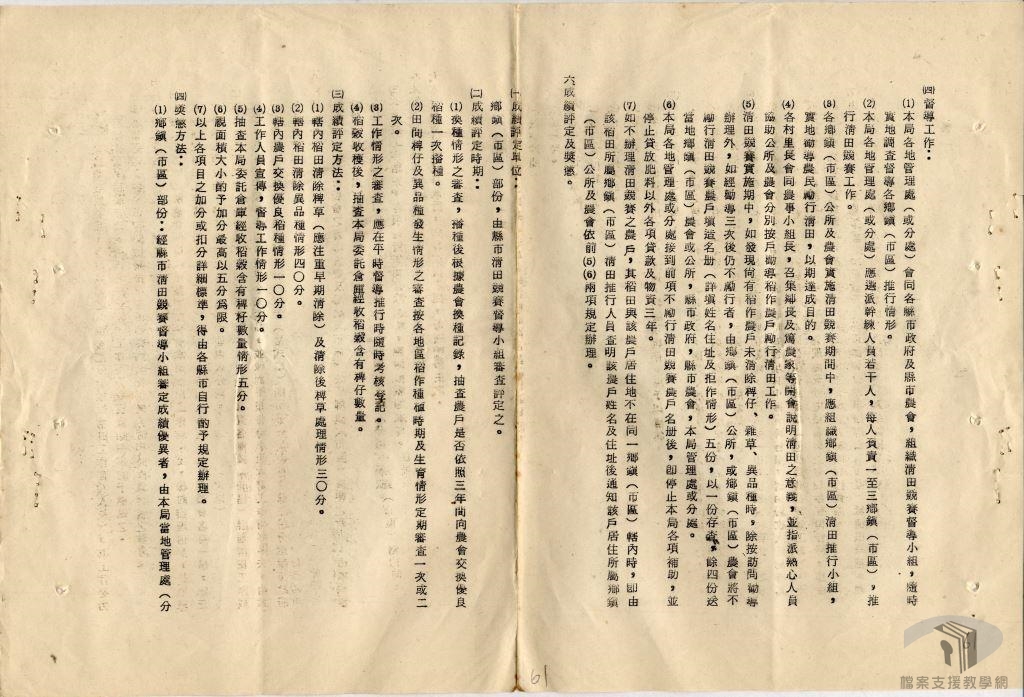 ㈣督導工作：
⑴本局各地管理處（或分處）會同各縣市政府及縣市農會，組織清田競賽督導小組，隨時
實地調查督導各鄉鎮（市區）推行情形。
⑵本局各地管理處（或分處）應選派幹練人員若干人，每人負責一至三鄉鎮（市區），推
行清田競賽工作。
⑶各鄉鎮（市區）公所及農會實施清田競賽期間中，應組織鄉鎮（市區）清田推行小組，
實地勸導農民勵行清田，以期達成目的。
⑷各村里長會同農事小組長，召集鄰長及篤農家等開會說明清田之意義，並指派熱心人員
協助公所及農會分別按戶勸導稻作農戶勵行清田工作。
⑸清田競賽實施期中，如發現尚有稻作農戶未清除稗仔、雜草、異品種時，除按訪問勸導
辦理外，如經勸導三次後仍不勵行者，由鄉鎮（市區）公所，或鄉鎮（市區）農會將不
勵行清田競賽農戶填造名册（詳填姓名住址及拒作情形）五份，以一份存查，餘四份送
當地鄉鎮（市區）農會或公所，縣市政府，縣市農會，本局管理處或分處。
⑹本局各地管理處或分處接到前項不勵行清田競賽農戶名册後，卽停止本局各項補助，並
停止貸放肥料以外各項貸款及物資三年。
⑺如不辦理清田競賽之農戶，其稻田與該農戶居住地不在同一鄉鎮（市區）轄內時，卽由
該稻田所屬鄉鎮（市區）清田推行人員查明該農戶姓名及住址後通知該戶居住所屬鄉鎮
（市區）公所及農會依前⑸⑹兩項規定辦理。
六、成績評定及獎懲。
㈠成績評定單位：
鄉鎮（市區）部份，由縣市清田競賽督導小組審查評定之。
㈡成績評定時期：
⑴換種情形之審查，播種後根據農會換種記錄，抽查農戶是否依照三年間向農會交換優良
稻種一次播種。
⑵田間稗仔及異品種發生情形之審查按各地區稻作種植時期及生育情形定期審查一次或二
次。
⑶工作情形之審查，應在平時督導推行時隨時考核登記。
⑷稻穀收穫後，抽查本局委託倉庫經收稻穀含有稗仔數量。
㈢成績評定方法：
⑴轄內稻田清除稗草（應注重早期清除）及清除後稗草處理情形三〇分。
⑵轄內稻田清除異品種情形四〇分。
⑶轄內農戶交換優良稻種情形一〇分。
⑷工作人員宣傳，督導工作情形一〇分。
⑸抽查本局委託倉庫經收稻穀含有稗籽數量情形五分。
⑹視面積大小的予加分最高以五分為限。
⑺以上各項目之加分或扣分詳細標準，得由各縣市自行酌予規定辦理。
㈣獎懲方法：
⑴鄉鎮（市區）部份：經縣市清田競賽督導小組審定成績優異者，由本局當地管理處（分
61
檔案支援教學網